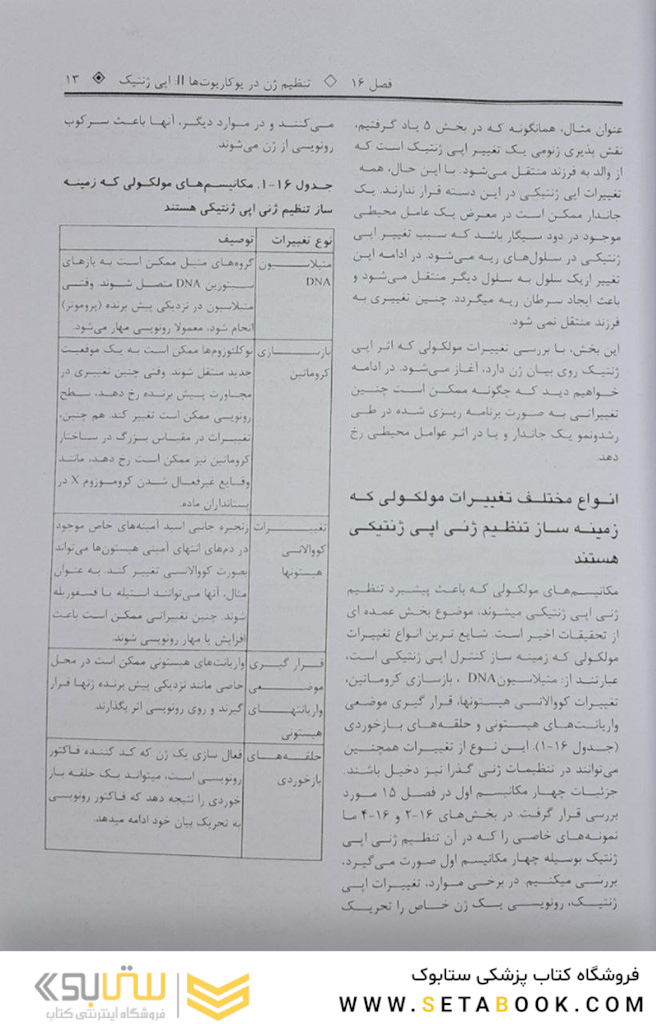 فصل ۱۶ ◇ تنظیم ژن در یوکاریوت‌ها II: اپی ژنتیک ◈ ۱۳
عنوان مثال، همانگونه که در بخش ۵ یاد گرفتیم،
نقش پذیری ژنومی یک تغییر اپی ژنتیک است که
از والد به فرزند منتقل می‌شود. با این حال، همه
تغییرات اپی ژنتیکی در این دسته قرار ندارند. یک
جاندار ممکن است در معرض یک عامل محیطی
موجود در دود سیگار باشد که سبب تغییر اپی
ژنتیکی در سلول‌های ریه می‌شود. در ادامه این
تغییر ازیک سلول به سلول دیگر منتقل می‌شود و
باعث ایجاد سرطان ریه میگردد. چنین تغییری به
فرزند منتقل نمی شود.
این بخش، با بررسی تغییرات مولکولی که اثر اپی
ژنتیک روی بیان ژن دارد، آغاز می‌شود. در ادامه
خواهیم دید که چگونه ممکن است چنین
تغییراتی به صورت برنامه ریزی شده در طی
رشدونمو یک جاندار و یا در اثر عوامل محیطی رخ
دهد.
انواع مختلف تغییرات مولکولی که
زمینه ساز تنظیم ژنی اپی ژنتیکی
هستند
مکانیسم‌های مولکولی که باعث پیشبرد تنظیم
ژنی اپی ژنتیکی میشوند، موضوع بخش عمده ای
از تحقیقات اخیر است. شایع ترین انواع تغییرات
مولکولی که زمینه ساز کنترل اپی ژنتیکی است،
عبارتند از: متیلاسیونDNA ، بازسازی کروماتین،
تغییرات کووالانسی هیستونها، قرار گیری موضعی
واریانت‌های هیستونی و حلقه‌های بازخوردی
(جدول ۱۶-۱). این نوع از تغییرات همچنین
می‌توانند در تنظیمات ژنی گذرا نیز دخیل باشند.
جزئیات چهار مکانیسم اول در فصل ۱۵ مورد
بررسی قرار گرفت. در بخش‌های ۱۶-۲ و ۱۶-۴ ما
نمونه‌های خاصی را که در آن تنظیم ژنی اپی
ژنتیک بوسیله چهار مکانیسم اول صورت می‌گیرد،
بررسی میکنیم. در برخی موارد، تغییرات اپی
ژنتیک، رونویسی یک ژن خاص را تحریک
می‌کنند و در موارد دیگر، آنها باعث سرکوب
رونویسی از ژن می‌شوند.
جدول ۱۶-۱. مکانیسم‌های مولکولی که زمینه
ساز تنظیم ژنی اپی ژنتیکی هستند
نوع تغییرات توصیف
متیلاسیون گروه‌های متیل ممکن است به بازهای
DNA سیتوزین DNA متصل شوند. وقتی
متیلاسیون در نزدیکی پیش برنده (پروموتر)
انجام شود، معمولا رونویسی مهار می‌شود.
بازسازی نوکلئوزوم‌ها ممکن است به یک موقعیت
کروماتین جدید منتقل شوند. وقتی چنین تغییری در
مجاورت پیش برنده رخ دهد، سطح
رونویسی ممکن است تغییر کند. هم چنین،
تغییرات در مقیاس بزرگ در ساختار
کروماتین نیز ممکن است رخ دهد، مانند
وقایع غیرفعال شدن کروموزوم X در
پستانداران ماده.
تغییرات زنجیره جانبی اسید آمینه‌های خاص موجود
کووالانسی در دم‌های انتهای آمینی هیستون‌ها می‌تواند
هیستونها بصورت کووالانسی تغییر کند. به عنوان
مثال، آنها می‌توانند استیله یا فسفوریله
شوند. چنین تغییراتی ممکن است باعث
افزایش یا مهار رونویسی شوند.
قرار گیری واریانت‌های هیستونی ممکن است در محل
موضعی خاصی مانند نزدیکی پیش برنده ژنها قرار
واریانتهای گیرند و روی رونویسی اثر بگذارند.
هیستونی
حلقه‌های فعال سازی یک ژن که کد کننده فاکتور
بازخوردی رونویسی است، میتواند یک حلقه باز
خوردی را نتیجه دهد که فاکتور رونویسی
به تحریک بیان خود ادامه میدهد.
فروشگاه کتاب پزشکی ستابوک
WWW.SETABOOK.COM
ستابوک
فروشگاه اینترنتی کتاب